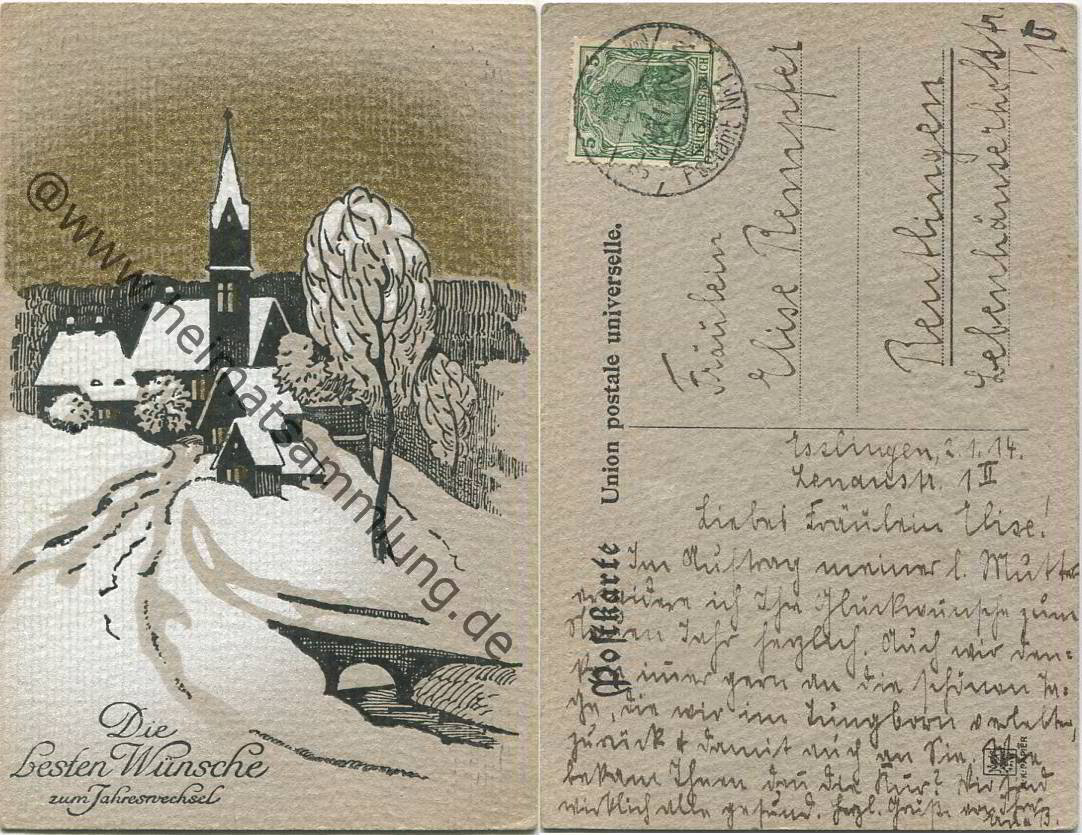 @www.heimatsammlung.de
Die
besten Wünsche
zum Jahreswechsel
5 5
DEUTSCHES REICH
Postamt Nr. 1
Postkarte Union postale universelle.
Fräulein
Elise Rempfer
Reutlingen
Lebenhäuserhofstr.
10
Esslingen, 2.1.14.
Lenaustr. 1 II
Liebes Fräulein Elise!
Im Auftrag meiner l. Mutter
erwidere ich Ihre Glückwünsche zum
Neuen Jahr herzlich. Auch wir den-
ken immer gern an die schönen Ta-
ge, die wir im Jungborn verlebten,
zurück & damit auch an Sie. Wie
bekam Ihnen denn die Kur? Wir sind
wirklich alle gesund. Herzl. Grüße von Ihrer